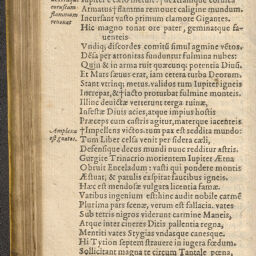 Iupiter è cælo metuit: dextramque corusca
coruscam
Armatus flamma remouet caligine mundum.
flammam
Incursant vasto primum clamore Gigantes.
remouet
Hic magno tonat ore pater, geminatque fa-
uenteis
Vndiq; discordes comitũ simul agmine vẽtos.
Dẽsa per attonitas funduntur fulmina nubes:
Quin & in arma ruit quæcunq; potentia Diuũ.
Et Mars sæuus erat, iam cetera turba Deorum.
Stant vtrinq; metus. validos tum Iupiter igneis
Increpat, & iacto proturbat fulmine monteis.
Illinc deuictæ verterunt terga ruinæ,
Infestæ Diuis acies, atque impius hostis
Præceps cum castris agitur, materque iacenteis
Amplexa
†Impellens victos. tum pax est seddita mundo:
est gnatos.
Tum Liber celsa venit per sidera cæli,
Defensique decus mundi nunc redditur astris.
Gurgite Trinacrio morientem Iupiter Ætna
Obruit Enceladum: vasti qui pondere montis
Æstuat, & patulis exspirat faucibus igneis.
Hæc est mendosæ vulgata licentia famæ.
Vatibus ingenium est: hinc audit nobile carmẽ
Plurima pars scenæ, verum est fallacia. vates
Sub terris nigros viderunt carmine Maneis,
Atque inter cineres Ditis pallentia regna,
Mentiti vates Stygias vndasque canesque.
Hi Tityon septem strauere in iugera fœdum.
Sollicitant magna te circum Tantale pœna,